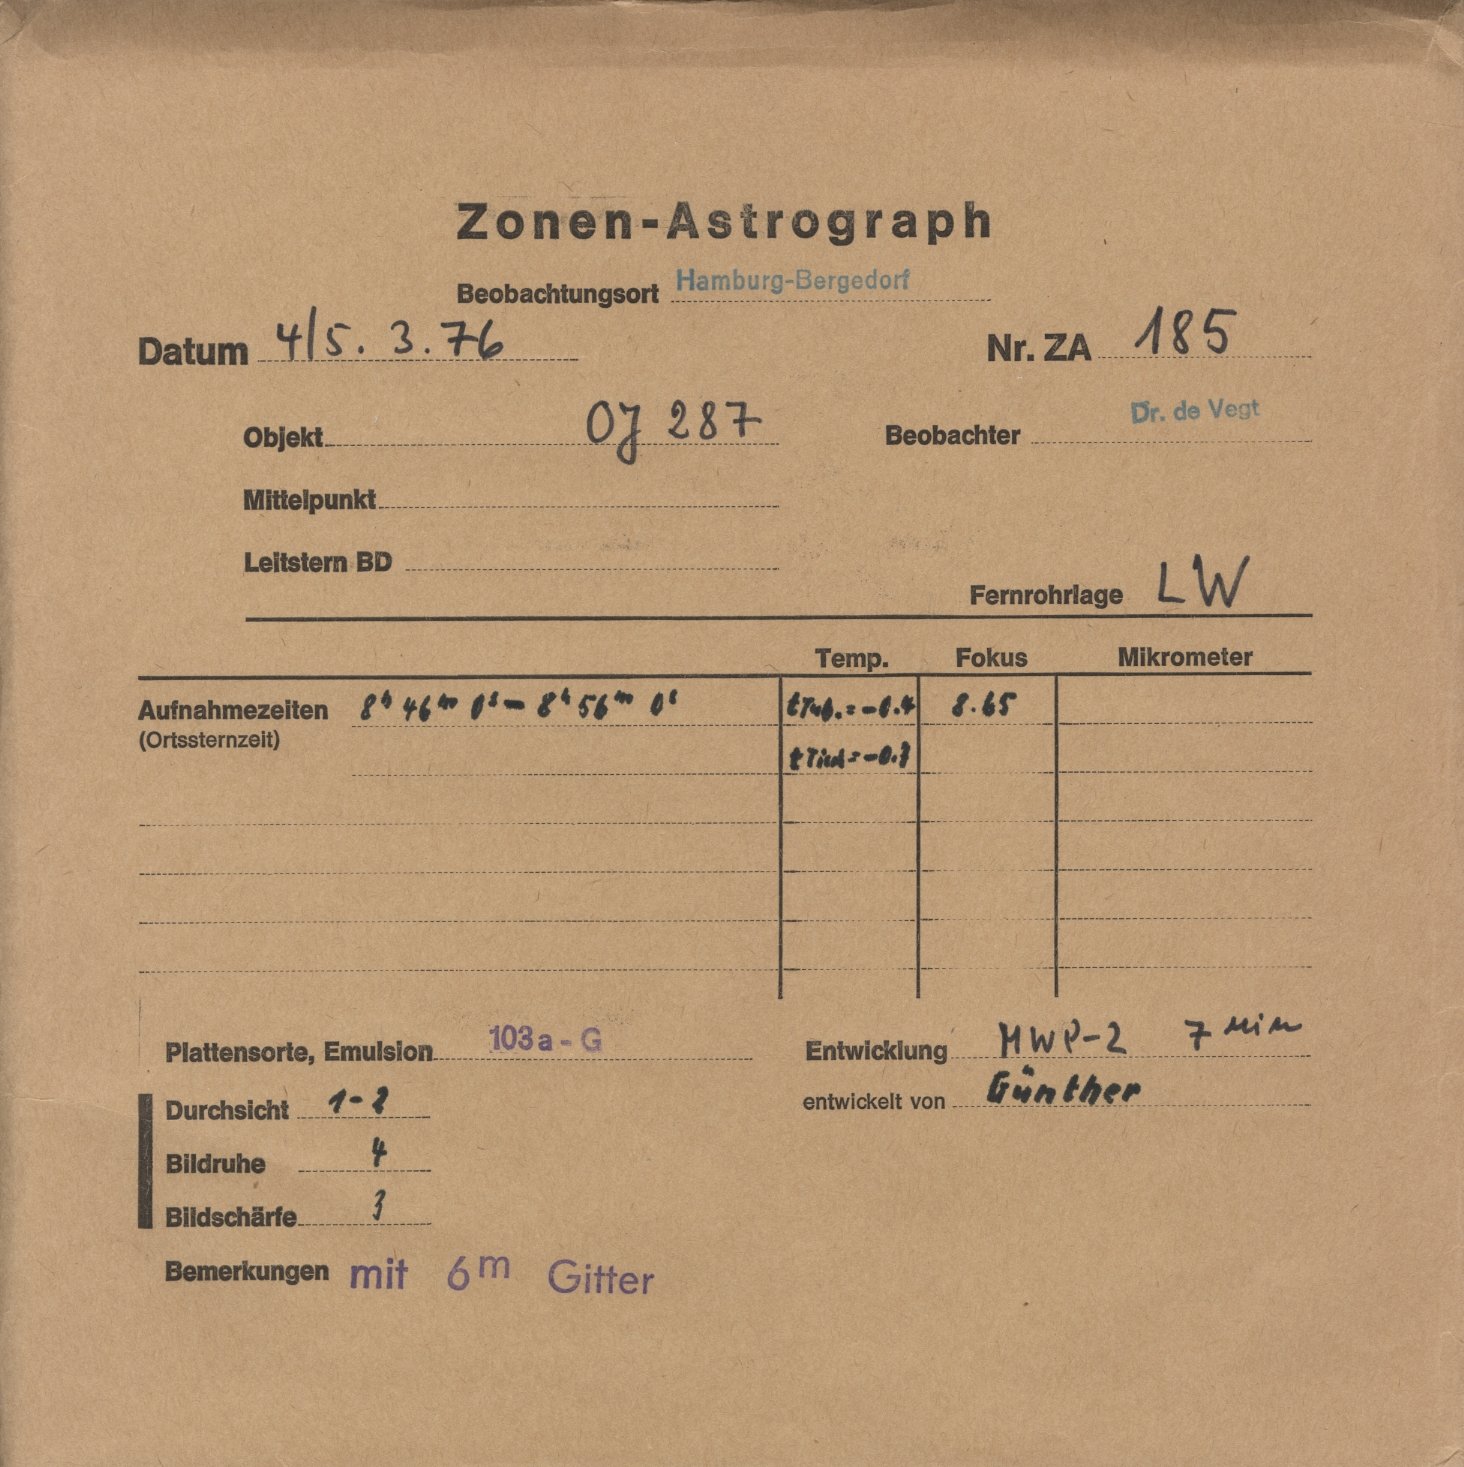 Zonen-Astrograph
Beobachtungsort Hamburg-Bergedorf
Datum 4/5. 3. 76 Nr. ZA 185
Objekt OJ 287 Beobachter Dr. de Vegt
Mittelpunkt
Leitstern BD
Fernrohrlage LW
Temp. Fokus Mikrometer
Aufnahmezeiten 8h 46m 0s – 8h 56m 0s tTub. = -0.4 8.65
(Ortssternzeit)
Plattensorte, Emulsion 103a-G Entwicklung MWP-2 7 min
Durchsicht 1-2 entwickelt von Günther
Bildruhe 4
Bildschärfe 3
Bemerkungen mit 6m Gitter